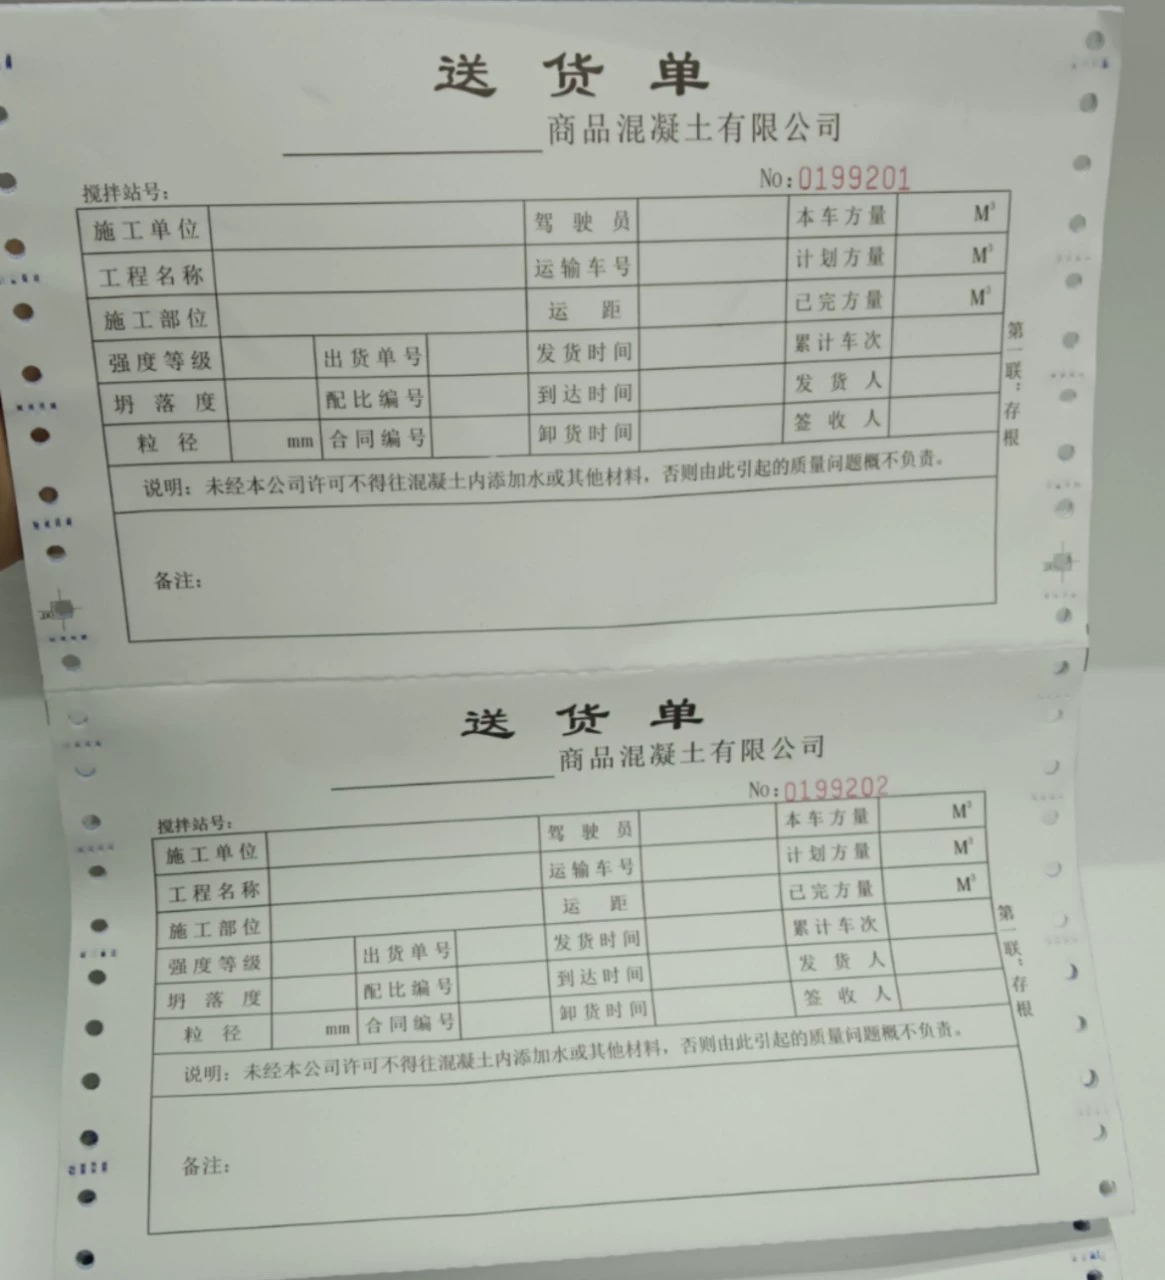 送货单
商品混凝土有限公司
搅拌站号: No:0199201
施工单位 驾驶员 本车方量 M³
工程名称 运输车号 计划方量 M³
施工部位 运距 已完方量 M³
强度等级 出货单号 发货时间 累计车次
坍落度 配比编号 到达时间 发货人
粒径 mm 合同编号 卸货时间 签收人
说明: 未经本公司许可不得往混凝土内添加水或其他材料，否则由此引起的质量问题概不负责。
备注:
第一联:存根
送货单
商品混凝土有限公司
搅拌站号: No:0199202
施工单位 驾驶员 本车方量 M³
工程名称 运输车号 计划方量 M³
施工部位 运距 已完方量 M³
强度等级 出货单号 发货时间 累计车次
坍落度 配比编号 到达时间 发货人
粒径 mm 合同编号 卸货时间 签收人
说明: 未经本公司许可不得往混凝土内添加水或其他材料，否则由此引起的质量问题概不负责。
备注:
第一联:存根